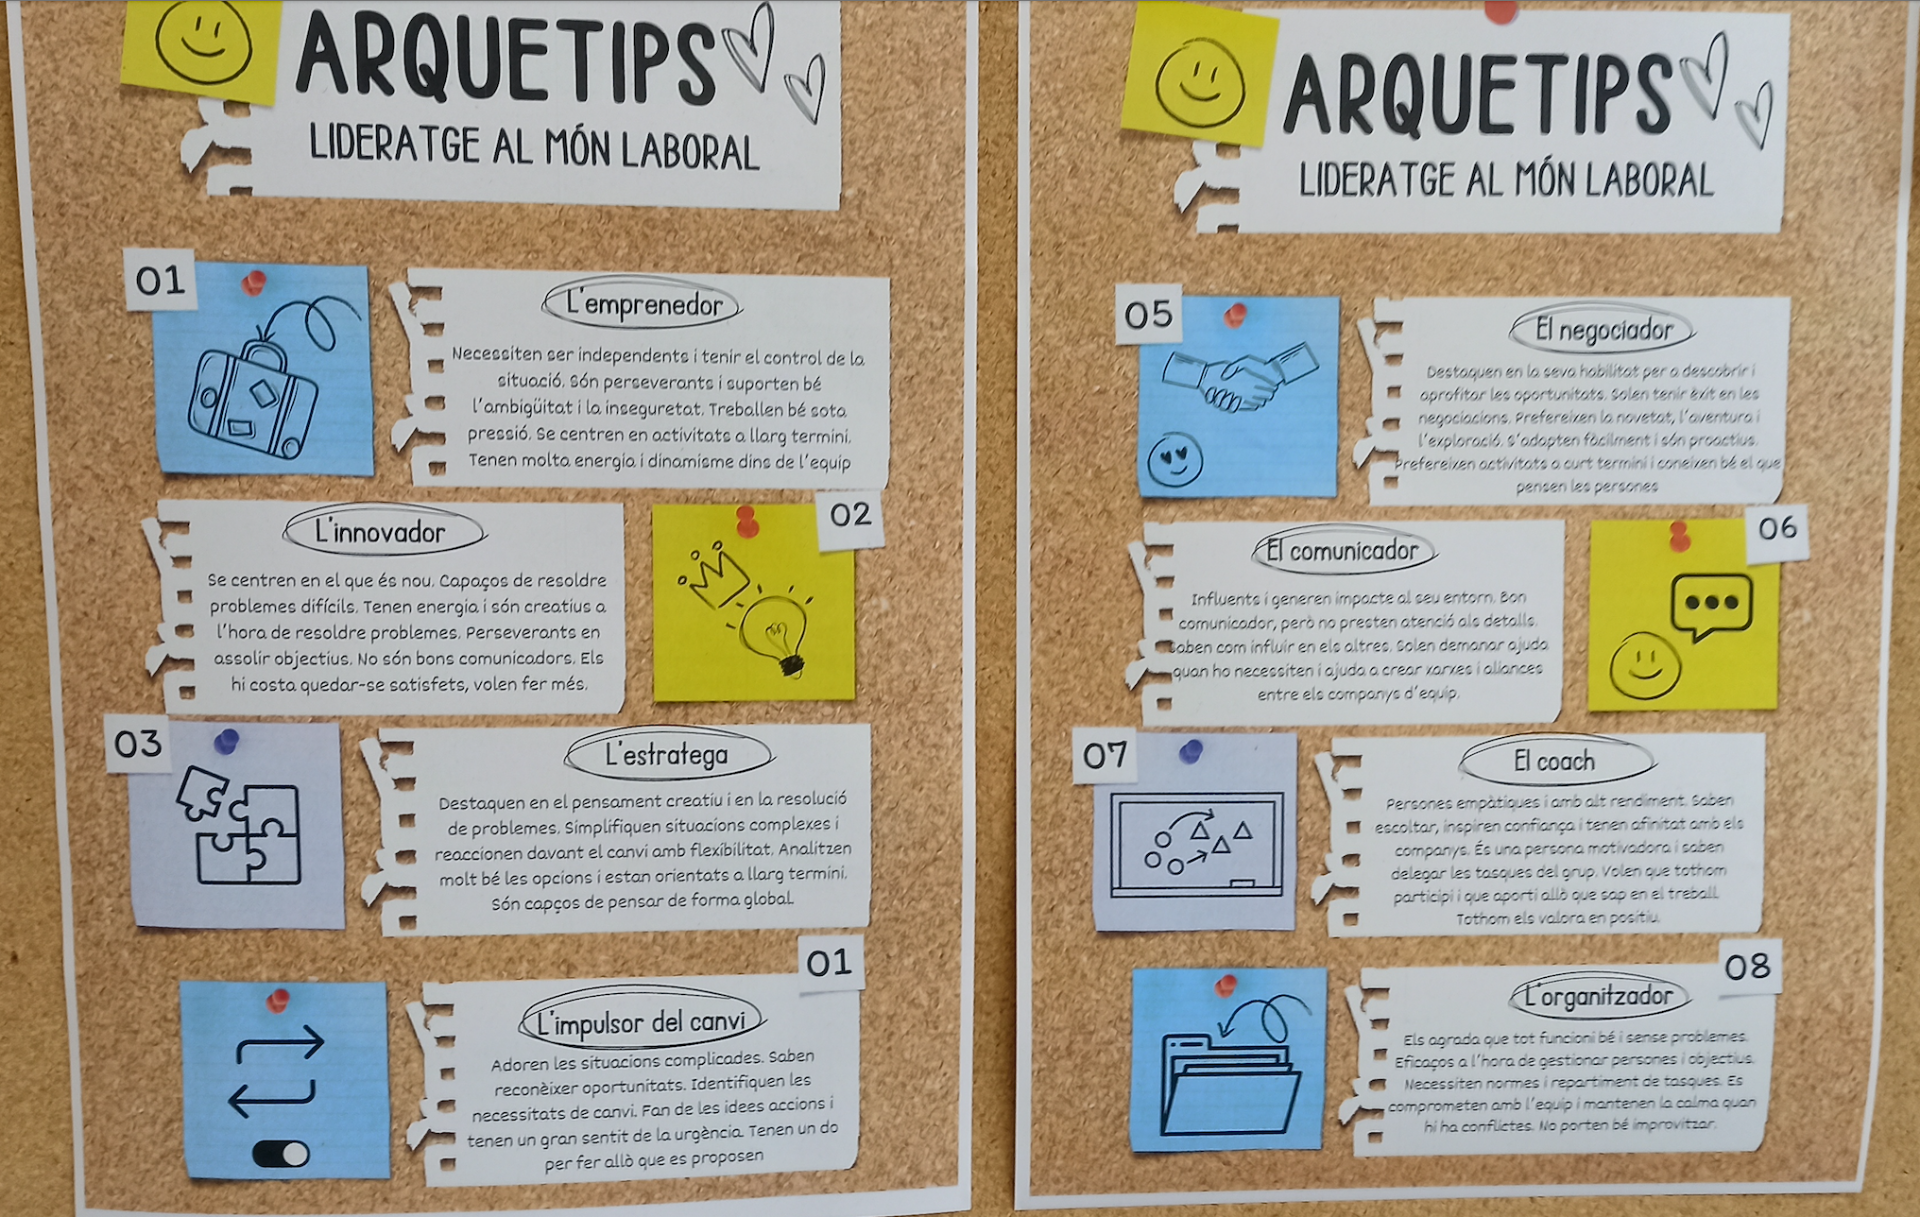 ARQUETIPS
LIDERATGE AL MÓN LABORAL
01
L'emprenedor
Necessiten ser independents i tenir el control de la
situació. Són perseverants i suporten bé
l'ambigüitat i la inseguretat. Treballen bé sota
pressió. Se centren en activitats a llarg termini.
Tenen molta energia i dinamisme dins de l'equip
L'innovador
02
Se centren en el que és nou. Capaços de resoldre
problemes difícils. Tenen energia i són creatius a
l'hora de resoldre problemes. Perseverants en
assolir objectius. No són bons comunicadors. Els
hi costa quedar-se satisfets, volen fer més.
03
L'estratega
Destaquen en el pensament creatiu i en la resolució
de problemes. Simplifiquen situacions complexes i
reaccionen davant el canvi amb flexíbilitat. Analitzen
molt bé les opcions i estan orientats a llarg termini.
Són capços de pensar de forma global.
01
L'impulsor del canvi
Adoren les situacions complicades. Saben
reconèixer oportunitats. Identifiquen les
necessitats de canvi. Fan de les idees accions i
tenen un gran sentit de la urgència. Tenen un do
per fer allò que es proposen
ARQUETIPS
LIDERATGE AL MÓN LABORAL
05
El negociador
Destaquen en la seva habilitat per a descobrir i
aprofitar les oportunitats. Solen tenir èxit en les
negociacions. Prefereixen la novetat, l'aventura i
l'exploració. S'adapten fàcilment i són proactius.
Prefereixen activitats a curt termini i coneixen bé el que
pensen les persones
El comunicador
06
Influents i generen impacte al seu entorn. Bon
comunicador, però no presten atenció als detalls.
Saben com influir en els altres. Solen demanar ajuda
quan ho necessiten i ajuda a crear xarxes i aliances
entre els companys d'equip.
07
El coach
Persones empàtiques i amb alt rendiment. Saben
escoltar, inspiren confiança i tenen afinitat amb els
companys. És una persona motivadora i saben
delegar les tasques del grup. Volen que tothom
participi i que aporti allò que sap en el treball.
Tothom els valora en positiu.
08
L'organitzador
Els agrada que tot funcioni bé i sense problemes.
Eficaços a l'hora de gestionar persones i objectius.
Necessiten normes i repartiment de tasques. Es
comprometen amb l'equip i mantenen la calma quan
hi ha conflictes. No porten bé improvitzar.